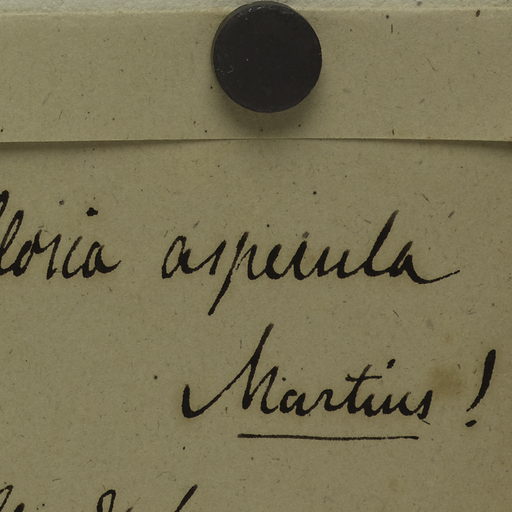 losia asperula
Martius!